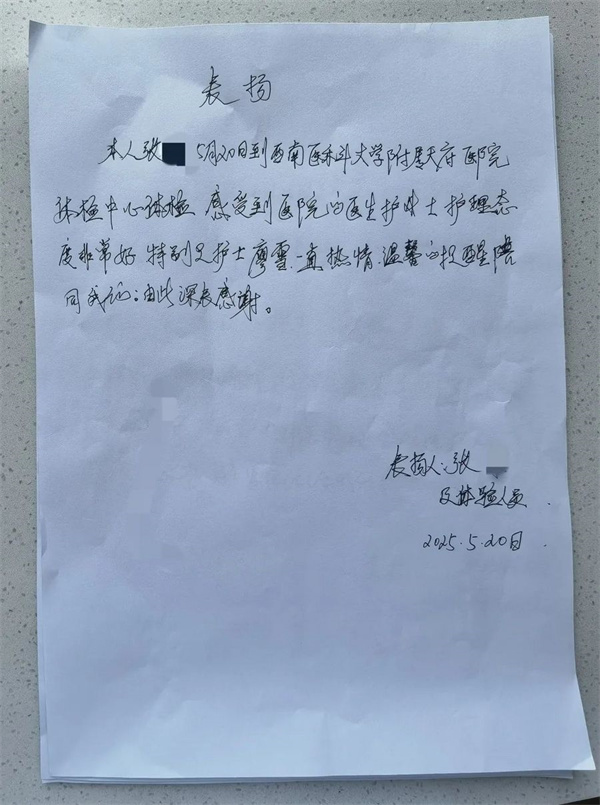 表扬
本人张 5月20日到西南医科大学附属天府医院
体检中心体检 感受到医院的医生护士护理态
度非常好 特别是护士廖雪一直热情.温馨的提醒陪
同我们;由此深表感谢。
表扬人:张
及体验人员.
2025.5.20日.